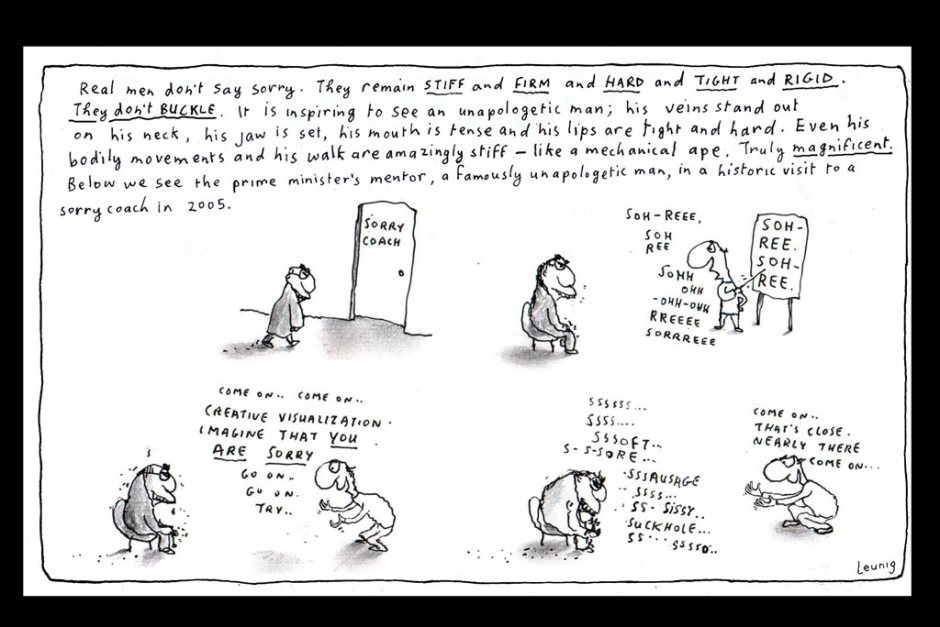 Real men don't say sorry. They remain STIFF and FIRM and HARD and TIGHT and RIGID.
They don't BUCKLE. It is inspiring to see an unapologetic man; his veins stand out
on his neck, his jaw is set, his mouth is tense and his lips are tight and hard. Even his
bodily movements and his walk are amazingly stiff – like a mechanical ape. Truly magnificent.
Below we see the prime minister's mentor, a famously unapologetic man, in a historic visit to a
sorry coach in 2005.
SORRY
COACH
SOH-REEE.
SOH
REE
SOHH
OHH
-OHH-OHH
RREEEE
SORRREEE
SOH-
REE.
SOH-
REE.
COME ON.. COME ON..
CREATIVE VISUALIZATION.
IMAGINE THAT YOU
ARE SORRY
GO ON.
GO ON.
TRY..
SSSSSS...
SSSS....
SSSOFT...
S-S-SORE...
SSSAUSAGE
SSSS...
SS-SISSY..
SUCKHOLE...
SS....SSSSO..
COME ON..
THAT'S CLOSE.
NEARLY THERE
COME ON...
Leunig